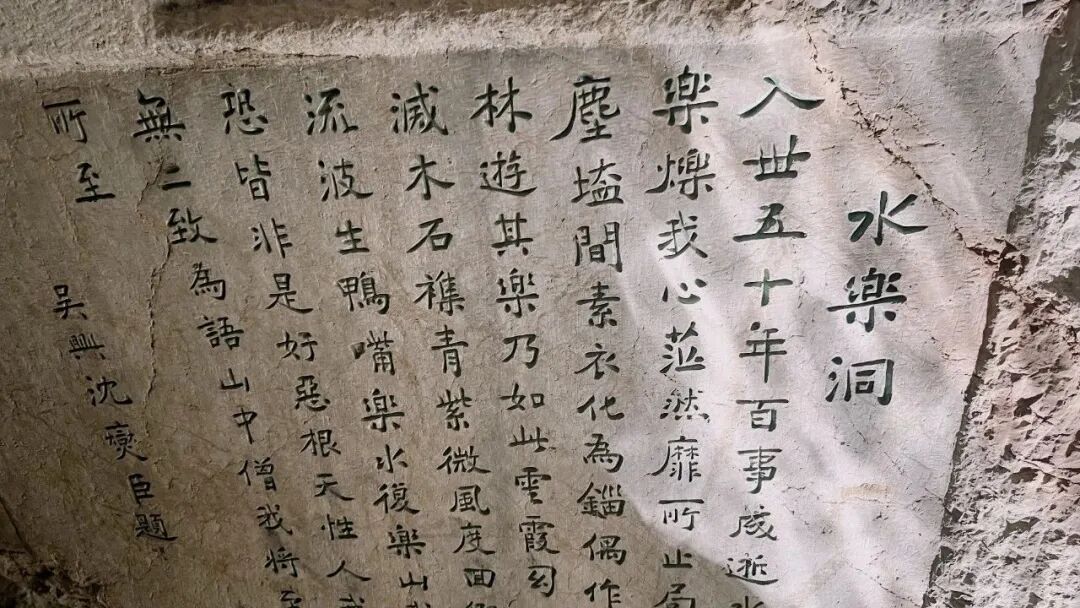 水楽洞
入世五十年百事成逝水
楽爍我心茫然靡所止局
塵壒間素衣化為錙偶作
林遊其楽乃如此雲霞幻
滅木石襍青紫微風度面
流波生鴨嘴楽水復楽山
恐皆非是好惡根天性人
無二致為語山中僧我將至
所至
吳興沈爕臣題